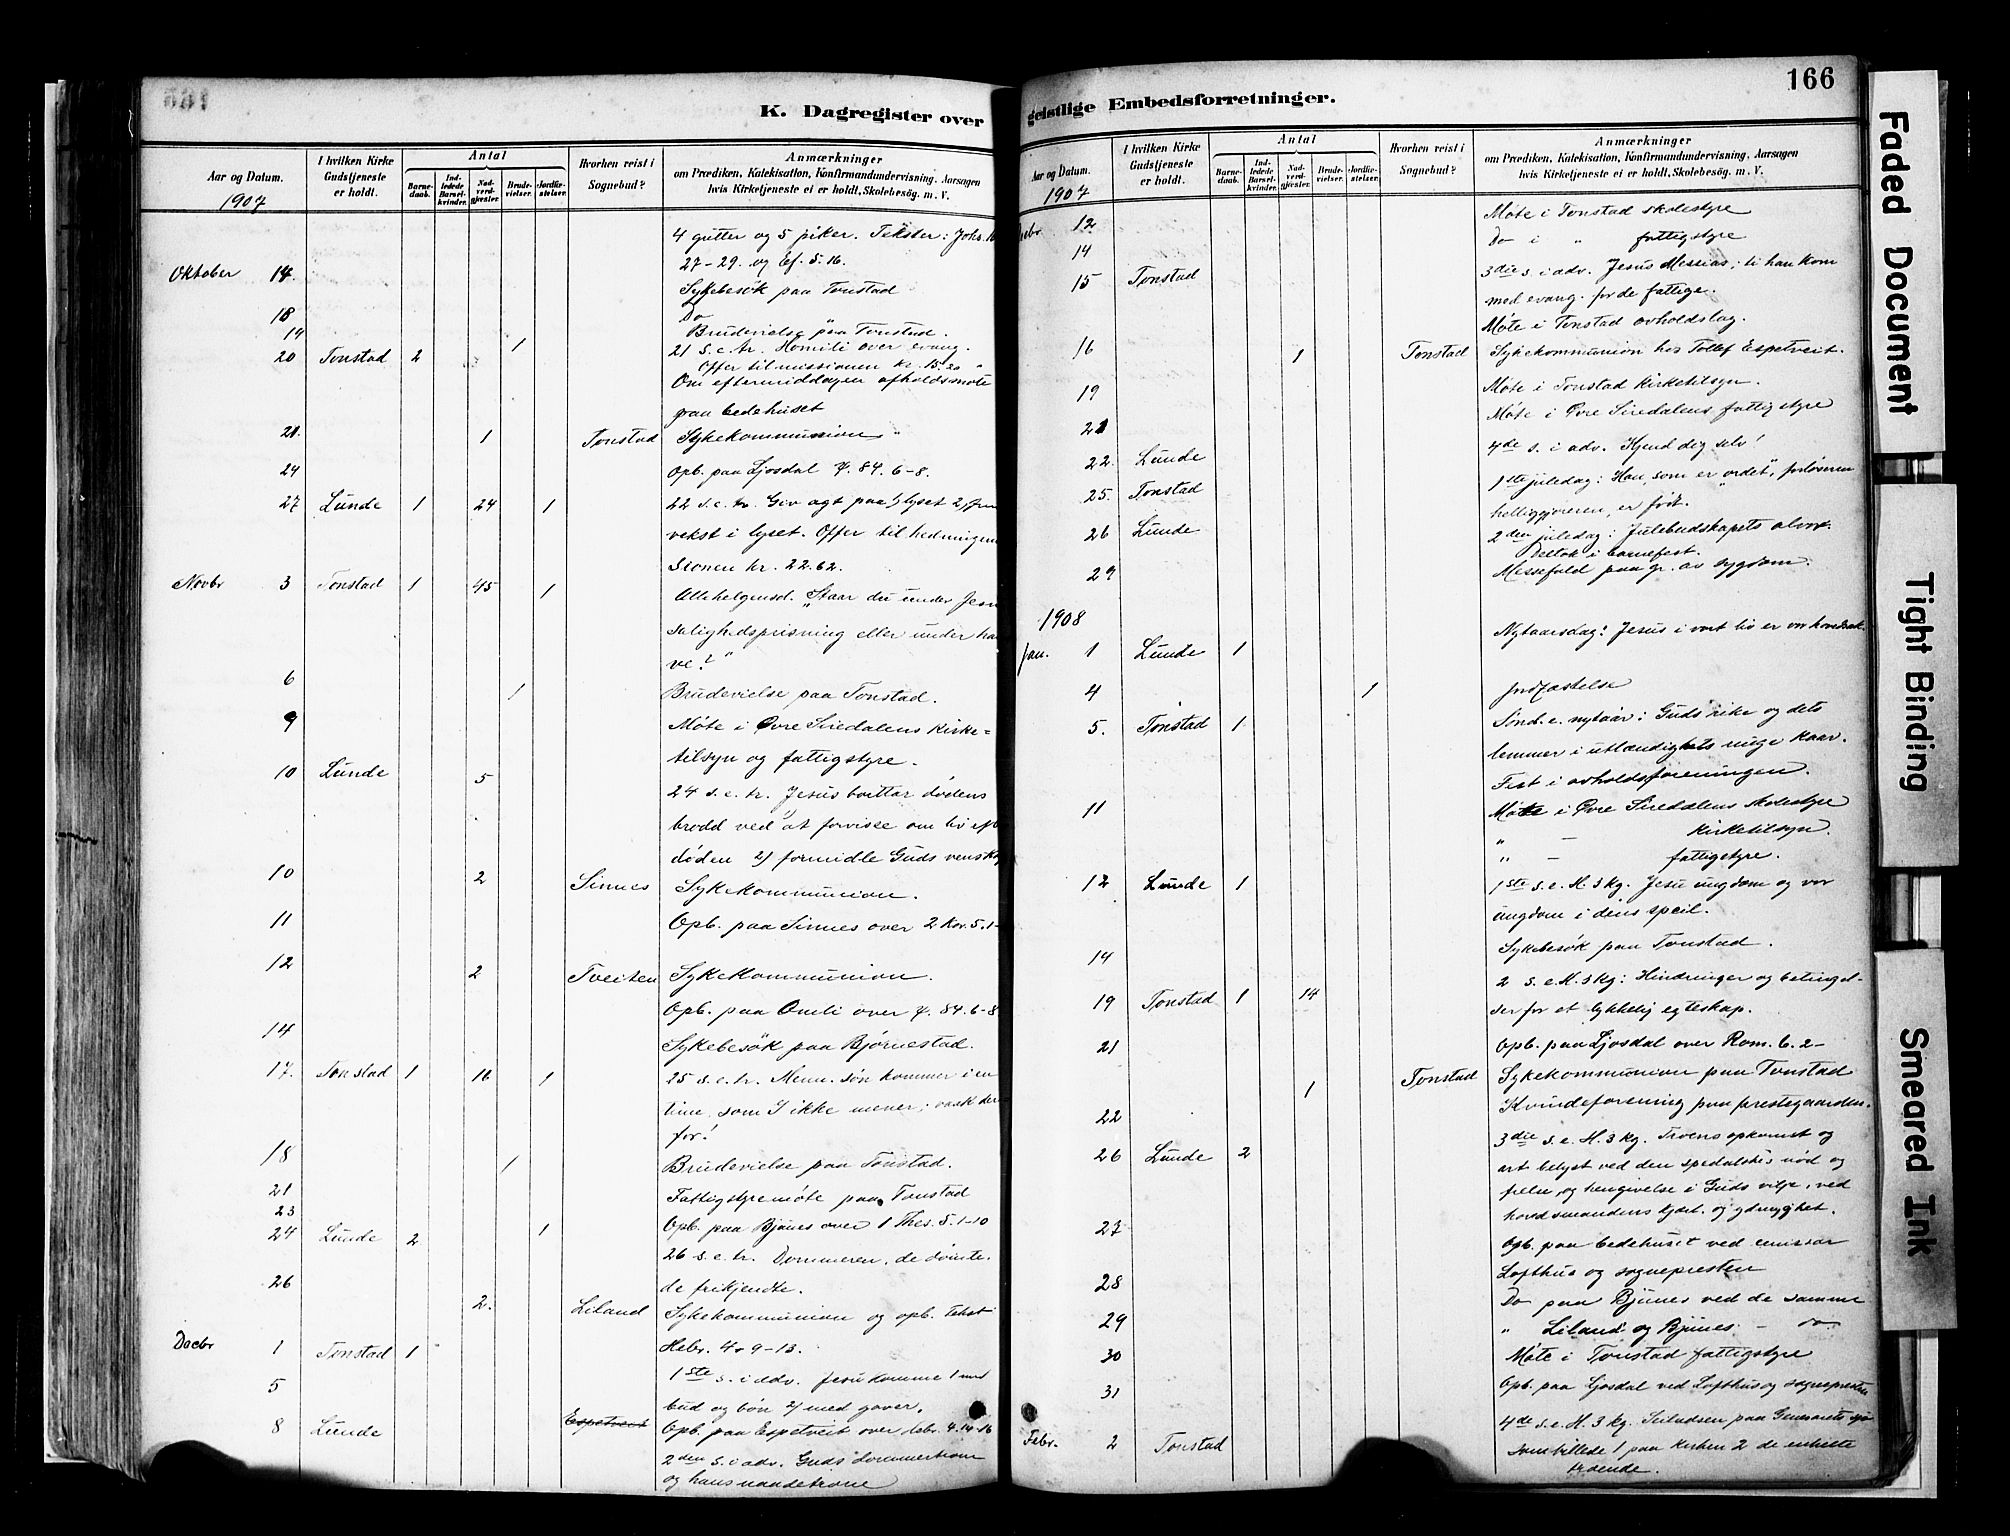 K. Dagregister over
Aar og Datum.
1907
I hvilken Kirke Gudstjeneste er holdt.
Antal
Barne-daab.
Ind-ledede Barsel-kvinder.
Nad-verd-gjester.
Brude-vielser.
Jordfæ-stelser.
Hvorhen reist i Sognebud?
Anmærkninger
om Prædiken, Katekisation, Konfirmandundervisning, Aarsagen
hvis Kirketjeneste ei er holdt, Skolebesøg. m. V.
4 gutter og 5 piker. Tekster: Johs.
27-29. og Ef. 5.16.
Oktober 14. Sykebesök paa Tonstad
18 Do
19 1 Brudevielse paa Tonstad.
20 Tonstad 2 21 s.e.tr. Homili over evang.
Offer til missionen kr. 15.20
Om eftermiddagen afholdsmøte
paa bedehuset
21. 1 Tonstad Sykekommunion
24 Opb. paa Ljosdal ψ. 84. 6-8.
27 Lunde 1 24 1 22 s.e.tr. Giv agt paa 1) lyset 2)
vekst i lyset. Offer til hedningem
sionen kr. 22.62.
Novbr 3 Tonstad 1 45 1 Allehelgensd. "Staar du under Jesu
salighedsprisning eller under ha
ve?"
6 1 Brudevielse paa Tonstad.
9 Møte i Øvre Siredalens kirke=
tilsyn og fattigstyre.
10 Lunde 5 24 s.e.tr. Jesus borttar dødens
brodd ved at forvisse om liv eft
døden 2) formidle Guds vensk
10 2 Sinnes Sykekommunion.
11 Opb. paa Sinnes over 2 Kor. 5.1-
12 2 Tveiten Sykekommunion.
Opb. paa Omli over ψ. 84. 6-8
14 Sykebesök paa Bjørnestad.
17. Tonstad 1 16 1 25 s.e.tr. Menn. søn kommer i en
time, som I ikke mener; vaak der
for!
18 1 Brudevielse paa Tonstad.
21 Fattigstyremøte paa Tonstad
23 Opb. paa Bjunes over 1 Thes. 5. 1-10
24 Lunde 2 1 26 s.e.tr. Dommeren, de dømte.
de frikjendte.
26 2. Liland Sykekommunion og opb. Tekst
Hebr. 4. 9-13.
Decbr 1 Tonstad 1 1ste s. i adv. Jesu komme 1 med
bud og bøn 2) med gaver.
5 Espetveit Opb. paa Espetveit over Hebr. 4. 14-16
8 Lunde 2den s. i adv. Guds dommertrone
og hans naadetrone
166
geistlige Embedsforretninger.
Aar og Datum.
1907
I hvilken Kirke Gudstjeneste er holdt.
Antal
Barne-daab.
Ind-ledede Barsel-kvinder.
Nad-verd-gjester.
Brude-vielser.
Jordfæ-stelser.
Hvorhen reist i Sognebud?
Anmærkninger
om Prædiken, Katekisation, Konfirmandundervisning, Aarsagen
hvis Kirketjeneste ei er holdt, Skolebesøg. m. V.
12 Møte i Tonstad skolestyre
Do i " fattigstyre
14
15 Tonstad 3die s. i adv. Jesus Messias; ti han kom
med evang. for de fattige.
Møte i Tonstad avholdslag.
16 1 Tonstad Sykekommunion hos Tollef Espetveit.
19 Møte i Tonstad kirketilsyn.
21 Møte i Øvre Siredalens fattigstyre
22. Lunde 4de s. i adv. Kjend dig selv!
25. Tonstad 1ste juledag: Han, som er "ordet", forløseren
helliggjøreren, er født.
26 Lunde 2den juledag: Julebudskapets alvor.
Deltok i barnefest.
29 Messefald paa gr. av sygdom.
1908
Jan. 1 Lunde 1 Nytaarsdag: Jesus i vort liv er vor hovedsak.
4 1 Jordfæstelse
5. Tonstad 1 Sønd. e. nytaar: Guds rike og dets
lemmer i utlændighets ringe kaar.
Fest i avholdsforeningen.
11 Møte i Øvre Siredalens skolestyre
" - kirketilsyn.
" - fattigstyre.
12 Lunde 1 1ste s. e. H. 3 kg. Jesu ungdom og vor
ungdom i dens speil.
14 Sykebesök paa Tonstad.
19 Tonstad 1 14 2 s. e. H. 3 kg: Hindringer og betingel-
ser for et lykkelig egteskap.
21 Opb. paa Ljosdal over Rom. 6. 2-
1 Tonstad Sykekommunion paa Tonstad
22 Kvindeforening paa prestegaarden.
26 Lunde 2 3die s. e. H. 3 kg. Troens opkomst og
art belyst ved den spedalskes nød og
frelse, og hengivelse i Guds vilje, ved
hovedsmandens kjærl. og ydmyghet.
27 Opb. paa bedehuset ved emissær
Lofthus og sognepresten
28 Do paa Bjunes ved de samme
29 " Liland og Bjunes - do
30 Møte i Tonstad fattigstyre
31 Opb. paa Ljosdal ved Lofthus og sognepresten
Febr. 2 Tonstad 4de s. e. H. 3 kg. Seiladsen paa Genesarets sjø
som billede 1 paa kirken 2 de enkelte
troende.
Faded Document
Tight Binding
Smeared Ink